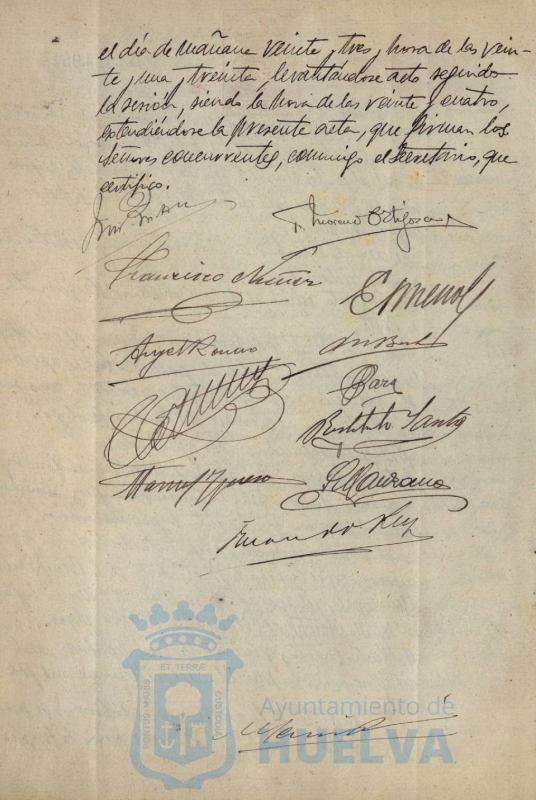 el día de mañana veinte y tres, hora de las vein-
te y una y treinta levantándose acto seguido
la sesión, siendo la hora de las veinte y cuatro,
extendiéndose la presente acta, que firman los
señores concurrentes, conmigo el Secretario, que
certifico.
F. Moreno Ortigosa
Francisco Núñez
Angel Romero
Bara
Restituto Santos
Manuel
S. Manzano
ET TERRÆ
PORTUS MARIS
CUSTODIA
Ayuntamiento de
HUELVA